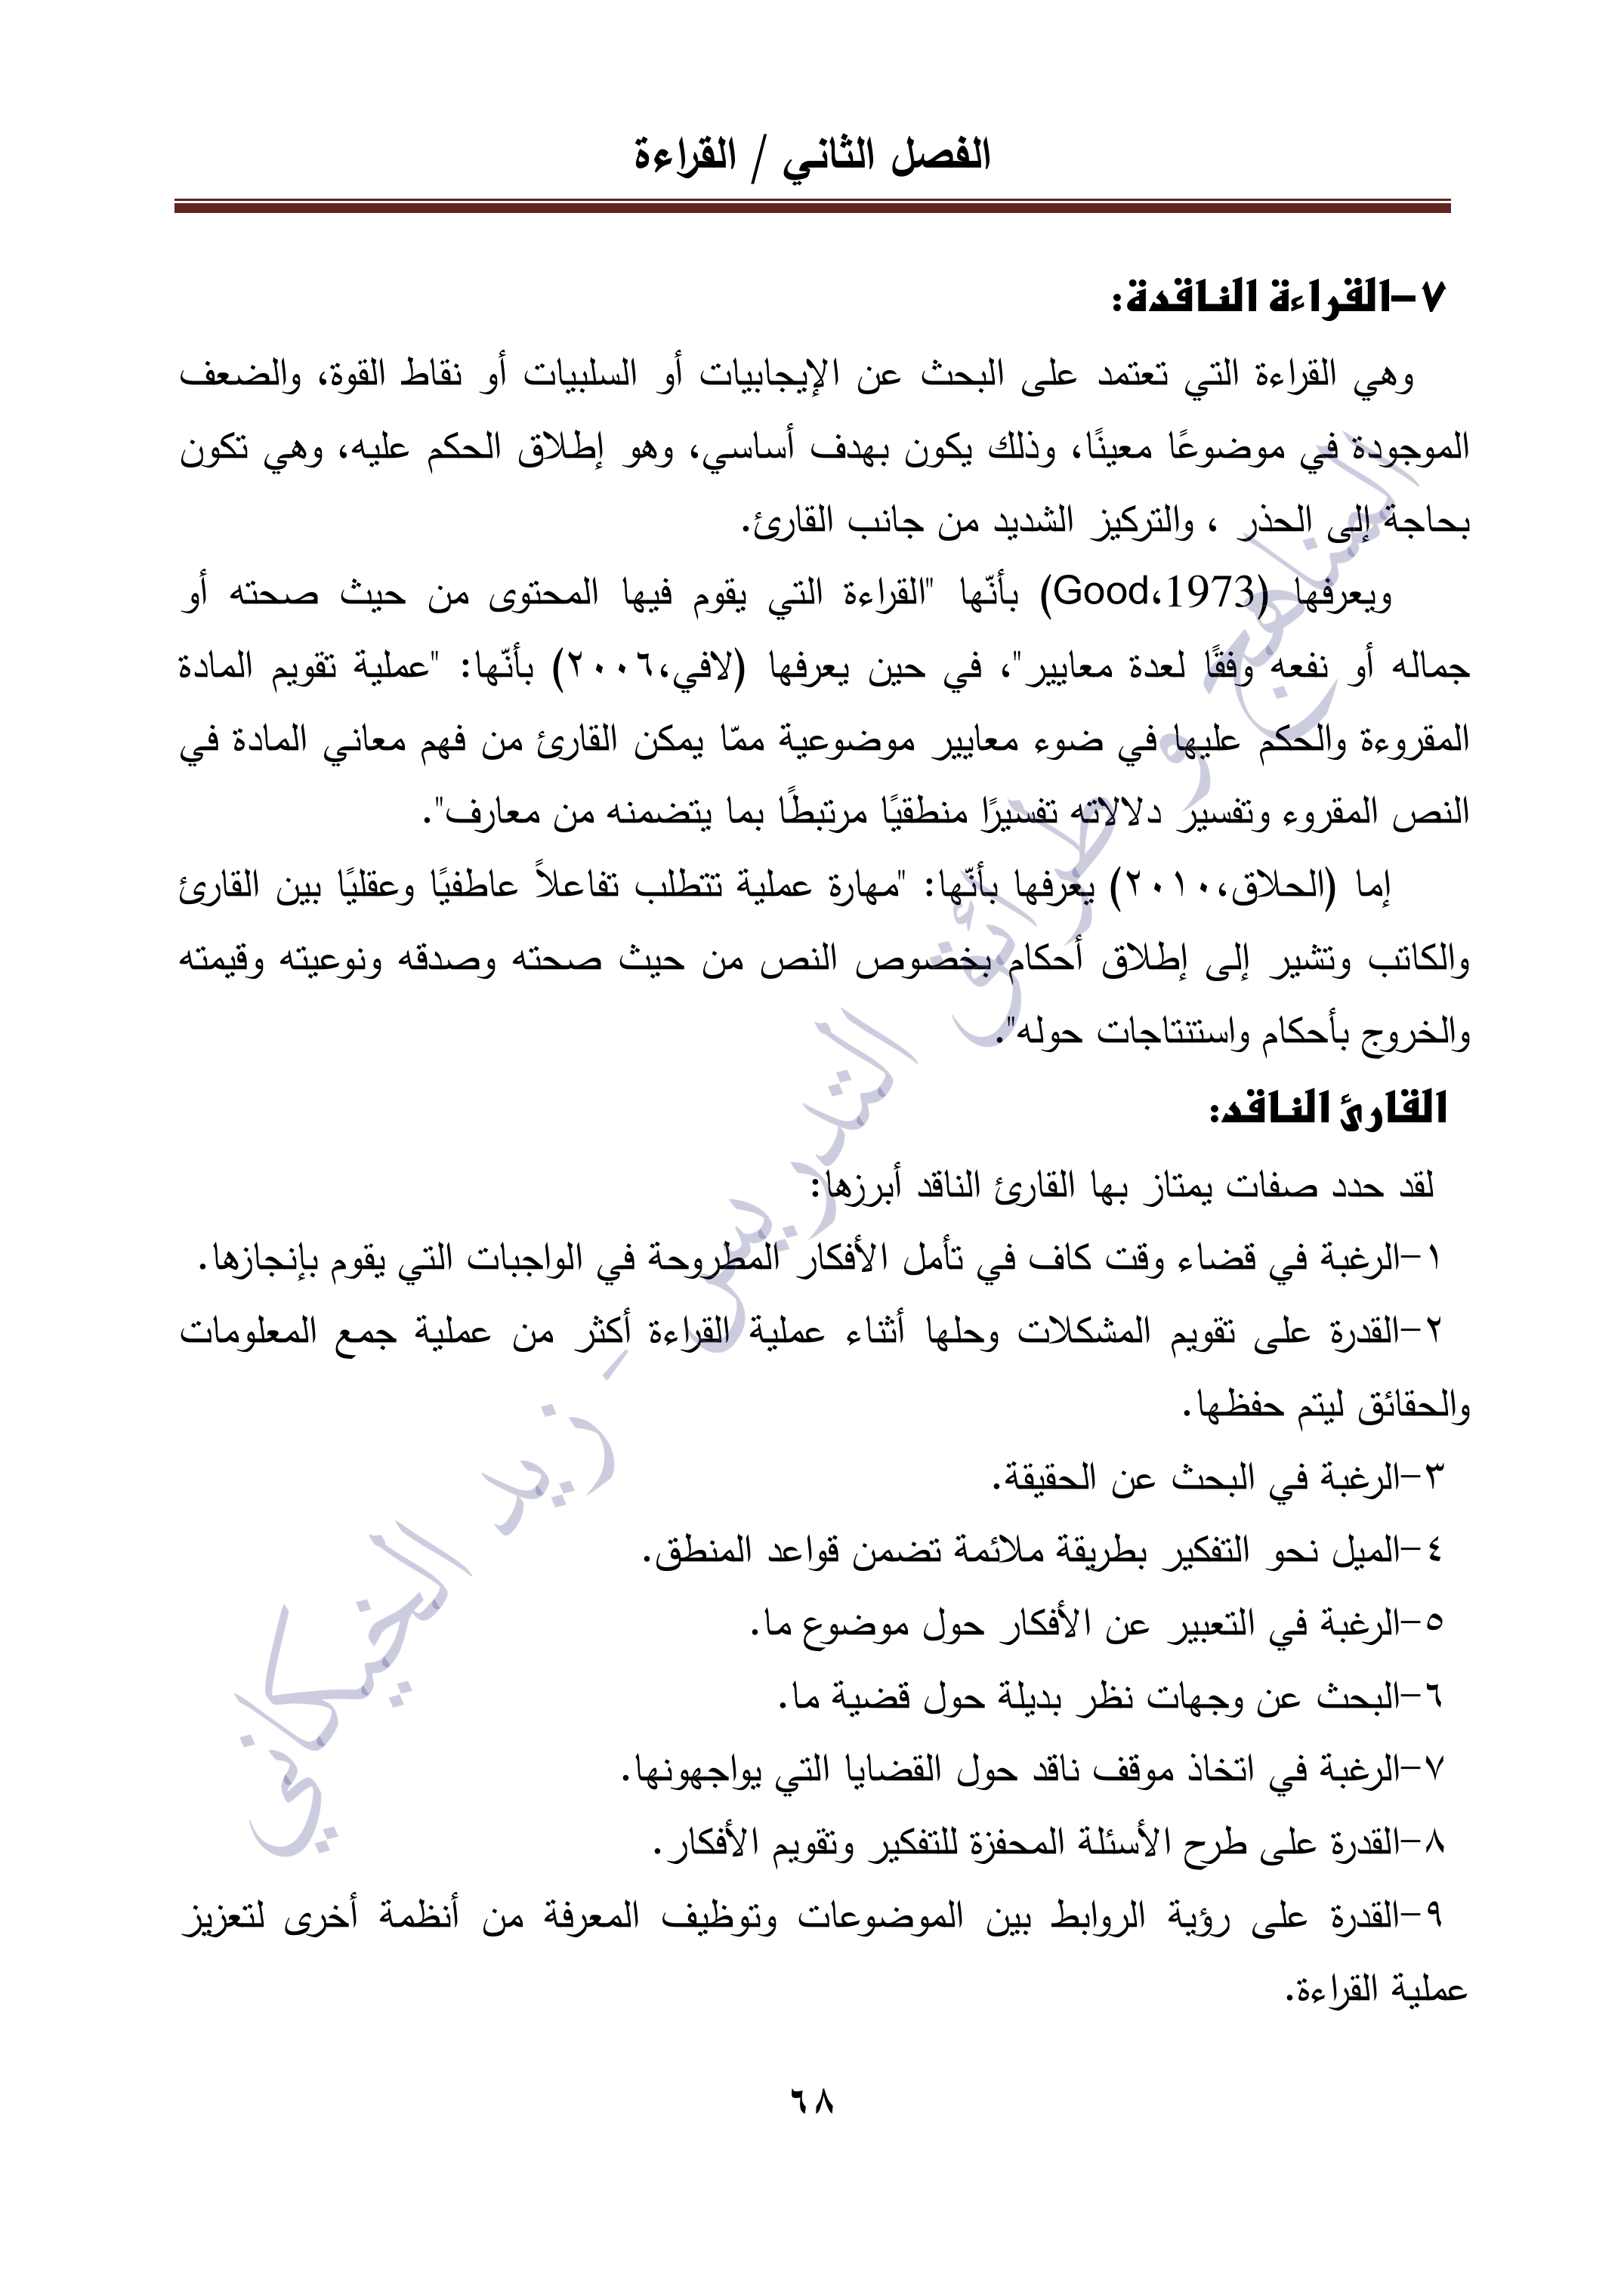 الفصل الثاني / القراءة
٧-القراءة الناقدة:
وهي القراءة التي تعتمد على البحث عن الإيجابيات أو السلبيات أو نقاط القوة، والضعف
الموجودة في موضوعًا معينًا، وذلك يكون بهدف أساسي، وهو إطلاق الحكم عليه، وهي تكون
بحاجة إلى الحذر ، والتركيز الشديد من جانب القارئ.
ويعرفها (Good،1973) بأنّها "القراءة التي يقوم فيها المحتوى من حيث صحته أو
جماله أو نفعه وفقًا لعدة معايير"، في حين يعرفها (لافي،٢٠٠٦) بأنّها: "عملية تقويم المادة
المقروءة والحكم عليها في ضوء معايير موضوعية ممّا يمكن القارئ من فهم معاني المادة في
النص المقروء وتفسير دلالاته تفسيرًا منطقيًا مرتبطًا بما يتضمنه من معارف".
إما (الحلاق،٢٠١٠) يعرفها بأنّها: "مهارة عملية تتطلب تفاعلاً عاطفيًا وعقليًا بين القارئ
والكاتب وتشير إلى إطلاق أحكام بخصوص النص من حيث صحته وصدقه ونوعيته وقيمته
والخروج بأحكام واستنتاجات حوله".
القارئ الناقد:
لقد حدد صفات يمتاز بها القارئ الناقد أبرزها:
١-الرغبة في قضاء وقت كاف في تأمل الأفكار المطروحة في الواجبات التي يقوم بإنجازها.
٢-القدرة على تقويم المشكلات وحلها أثناء عملية القراءة أكثر من عملية جمع المعلومات
والحقائق ليتم حفظها.
٣-الرغبة في البحث عن الحقيقة.
٤-الميل نحو التفكير بطريقة ملائمة تضمن قواعد المنطق.
٥-الرغبة في التعبير عن الأفكار حول موضوع ما.
٦-البحث عن وجهات نظر بديلة حول قضية ما.
٧-الرغبة في اتخاذ موقف ناقد حول القضايا التي يواجهونها.
٨-القدرة على طرح الأسئلة المحفزة للتفكير وتقويم الأفكار.
٩-القدرة على رؤية الروابط بين الموضوعات وتوظيف المعرفة من أنظمة أخرى لتعزيز
عملية القراءة.
٦٨
المناهج و طرائق التدريس - زيد الخيكاني